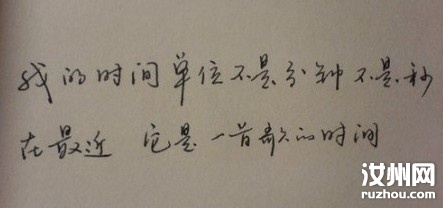 我的时间单位不是分钟不是秒
在最近 它是一首歌的时间
汝州网
ruzhou.com